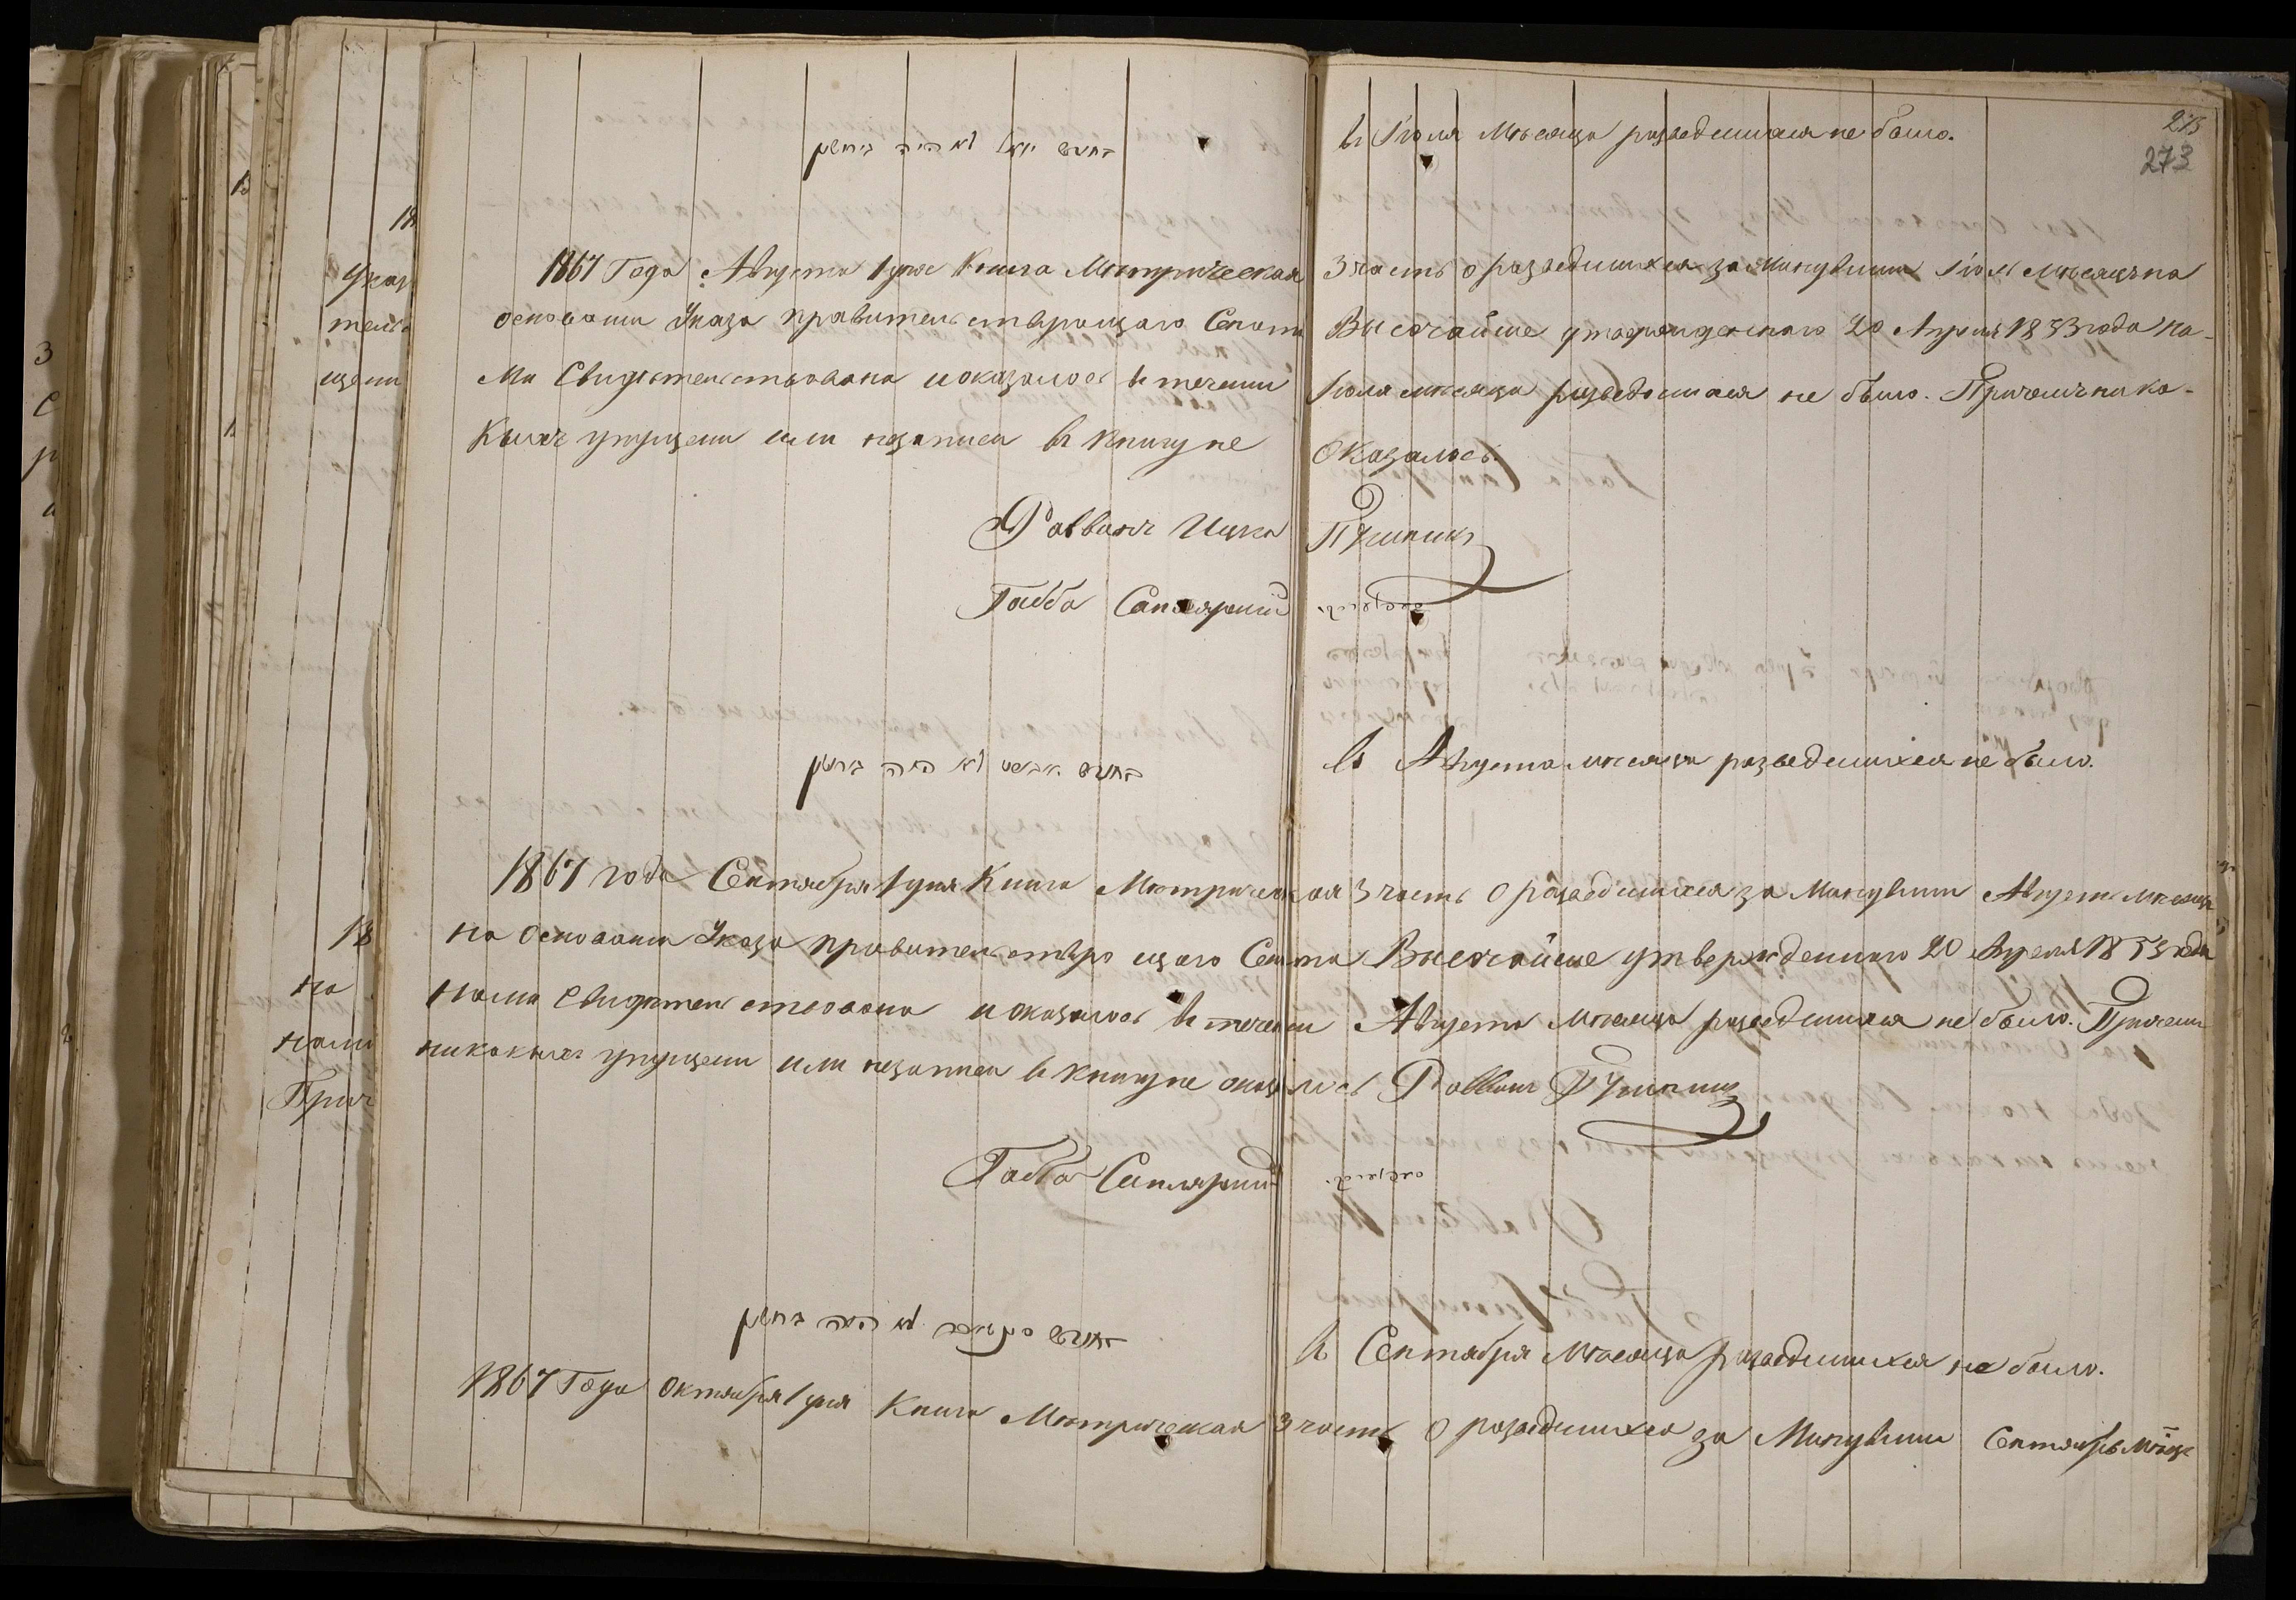 בחודש יואל לא היה גירושין
въ Іюля Мѣсяца разведшихся не было.
273
273
1867 Года Августа 1 дня Книга Метрическая 3 часть о разведшихся за Минувшии Іюль мѣсяцъ на
основании Указа правительствующаго Сената Высочайше утвержденнаго 20 Апреля 1853 года на-
ми Свидѣтельствована и оказалось въ течении Іюля мѣсяца разведшихся не было. Причемъ ника-
кихъ упущени или незаписи въ книгу не оказалось
Раввинъ Ицка
Габба Сапожницкий
בחודש אבגוסט לא היה גירושין
въ Августа мѣсяца разведшихся не было.
1867 года Сентября 1 дня Книга Метрическая 3 часть о разведшихся за Минувшии Августъ мѣсяцъ
на основании Указа правительствующаго Сената Высочайше утвержденнаго 20 Апреля 1853 года
нами Свидѣтельствована и оказалось въ течении Августа мѣсяца разведшихся не было. Причемъ
никакихъ упущени или незаписи въ книгу не оказалось Раввинъ
Габба
בחודש סעפטאבר לא היה גירושין
въ Сентября Мѣсяца разведшихся не было.
1867 Года Октября 1 дня Книга Метрическая 3 часть о разведшихся за Минувшии Сентябрь Мѣсяцъ